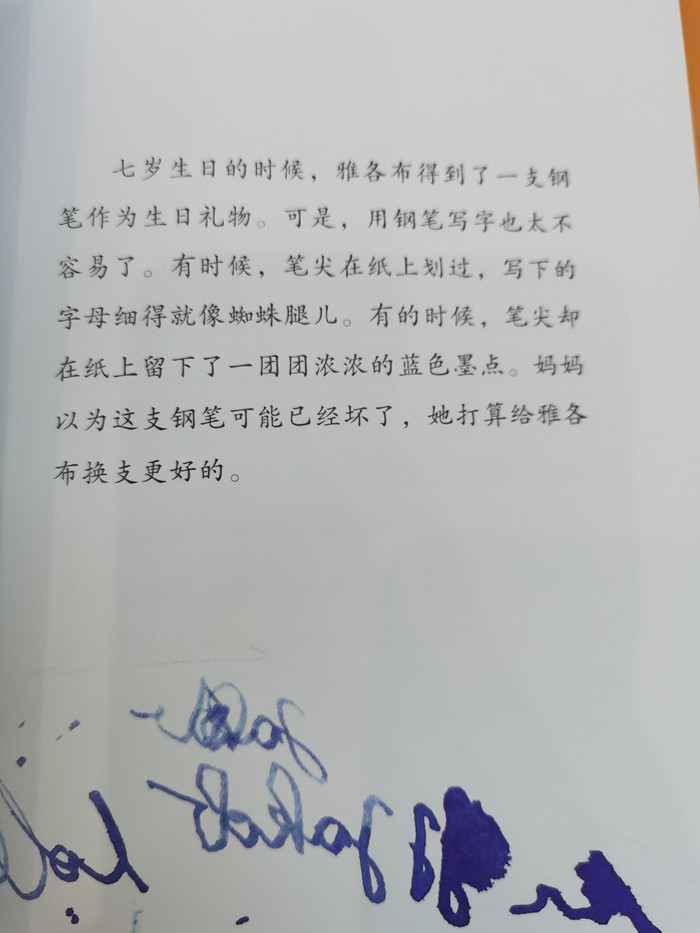 七岁生日的时候，雅各布得到了一支钢
笔作为生日礼物。可是，用钢笔写字也太不
容易了。有时候，笔尖在纸上划过，写下的
字母细得就像蜘蛛腿儿。有的时候，笔尖却
在纸上留下了一团团浓浓的蓝色墨点。妈妈
以为这支钢笔可能已经坏了，她打算给雅各
布换支更好的。